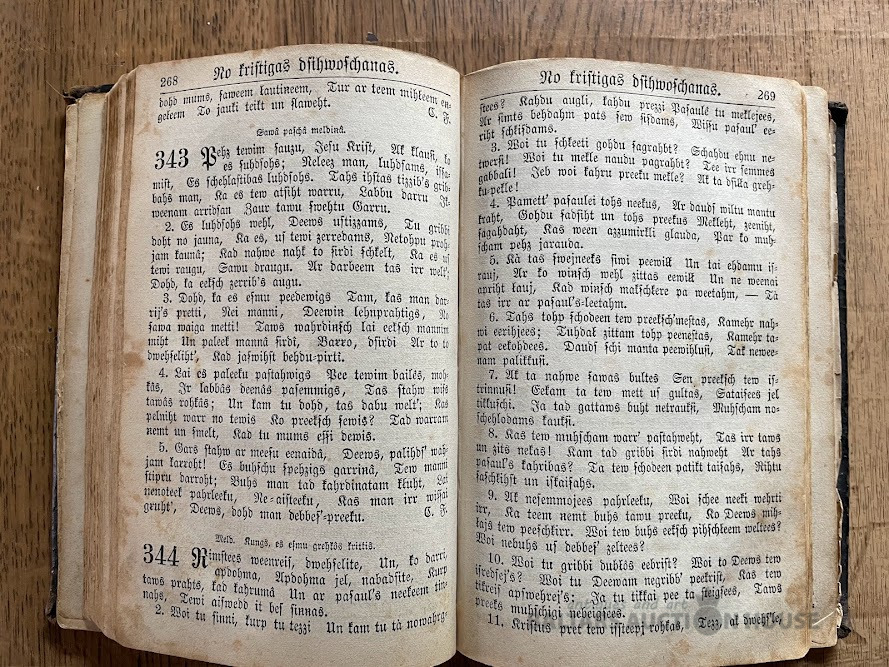 268 No kristigas dsihwoschanas.
dohd mums, saweem lautineem, Tur ar teem mihkeem en-
geleem To jauki teikt un slaweht. C. F.
Sawâ paschâ meldinâ.
343 Pehz tewim sauzu, Jesu Krist, Ak klausi, ko
es suhdsohs; Neleez man, luhdsams, issa-
mist, Es schehlastibas luhdsohs. Tahs ihstas tizzib's grib-
bahs man, Ka es tew atsiht warru, Labbu darru Ik-
weenam arridsan Zaur tawu swehtu Garru.
2. Es luhdsohs wehl, Deews ustizzams, Tu gribbi
doht no jauna, Ka es, us tewi zerredams, Netohpu proh-
jam kaunâ; Kad nahwe nahk to sirdi schkelt, Ka es us
tewi raugu, Sawu draugu. Ar darbeem tas irr welt';
Dohd, ka eeksch zerrib's augu.
3. Dohd, ka es esmu peedewigs Tam, kas man dar-
rij's pretti, Nei manni, Deewin lehnprahtigs, No
sawa waiga metti! Taws wahrdinsch lai eeksch mannim
miht Un paleek mannâ sirdi, Barro, dsirdi Ar to to
dwehseliht', Kad jaswihst behdu-pirti.
4. Lai es paleeku pastahwigs Pee tewim bailês, moh-
kâs, Ir labbâs deenâs pasemmigs, Tas stahw wiss
tawâs rohkâs; Un kam tu dohd, tas dabu welt'; Kas
pelniht warr no tewis Ko preeksch sewis? Tad warram
nemt un smelt, Kad tu mums essi dewis.
5. Gars stahw ar meesu eenaidâ, Deews, palihds' wah-
jam karroht! Es buhschu spehzigs garrinâ, Tew manni
stipru darroht; Buhs man tad kahrdinatam kluht, Lai
nenoteek pahrleeku, Ne-aisteeku, Kas man irr wissai
gruht', Deews, dohd man debbes'-preeku. C. F.
Meld. Kungs, es esmu grehkôs krittis.
344 Rimstees weenreis, dwehselite, Un, ko darri,
apdohma, Apdohma jel, nabadsite, Kurp
taws prahts, kad kahrumâ Un ar pasaul's neekeem tin-
nahs, Tewi aiswedd it bes sinnas.
2. Woi tu sinni, kurp tu tezzi Un kam tu tà nowahrg-
No kristigas dsihwoschanas. 269
stees? Kahdu augli, kahdu prezzi Pasaulê tu meklejees,
Ar simts behdahm pats sew sisdams, Wissu pasaul' ee-
riht schkisdams.
3. Woi tu schkeeti gohdu sagrahbt? Schahdu ehnu ne-
twersi! Woi tu mekle naudu pagrahbt? Tee irr semmes
gabbali! Jeb woi kahru preeku mekle? Ak ta dsilla greh-
ku-pekle!
4. Pamett' pasaulei tohs neekus, Ar daudf wiltu mantu
kraht, Gohdu sadsiht un tohs preekus Mekleht, zeeniht,
sagahdaht, Kas ween azzumirkli glauda, Par ko muh-
scham pehz jarauda.
5. Kà tas swejneeks siwi peewilk Un tai ehdamu is-
rauj, Ar ko winsch wehl zittas eewilk Un ne weenai
apriht kauj, Kad winsch makschkere pa weetahm, — Tà
tas irr ar pasaul's-leetahm.
6. Tahs tohp schodeen tew preeksch'mestas, Kamehr nah-
wi eerihjees; Tuhdal zittam tohp peenestas, Kamehr ta-
pat eekohdees. Daudf schi manta peewihlusi, Tak neween-
nam palikkusi.
7. Ak ta nahwe sawas bultes Sen preeksch tew is-
trinnusi! Eekam ta tew mett us gultas, Sataisees jel
tikkuschi. Ja tad gattaws buht netrauksi, Muhscham no-
schehlodams kauksi.
8. Kas tew muhscham warr' pastahweht, Tas irr taws
un zits nekas! Kam tad gribbi sirdi nahweht Ar tahs
pasaul's kahribas? Ta tew schodeen patikt taisahs, Rihtu
saschkihst un iskaisahs.
9. Ak nesemmojees pahrleeku, Woi schee neeki wehrti
irr, Ka teem nemt buhs tawu preeku, Ko Deews mih-
kajs tew peeschkirr. Woi tew buhs eeksch pihschleem weltees?
Woi nebuhs us debbes' zeltees?
10. Woi tu gribbi dublôs eebrist? Woi to Deews tew
isredsej's? Woi tu Deewam negribb' peekrist, Kas tew
tikreis apswehrej's: Ja tu tikkai pee ta steigsees, Taws
preeks muhschigi nebeigsees.
11. Kristus pret tew issteepj rohkas, Tezz' ak dwehs'le,
and art
AUCTION HOUSE